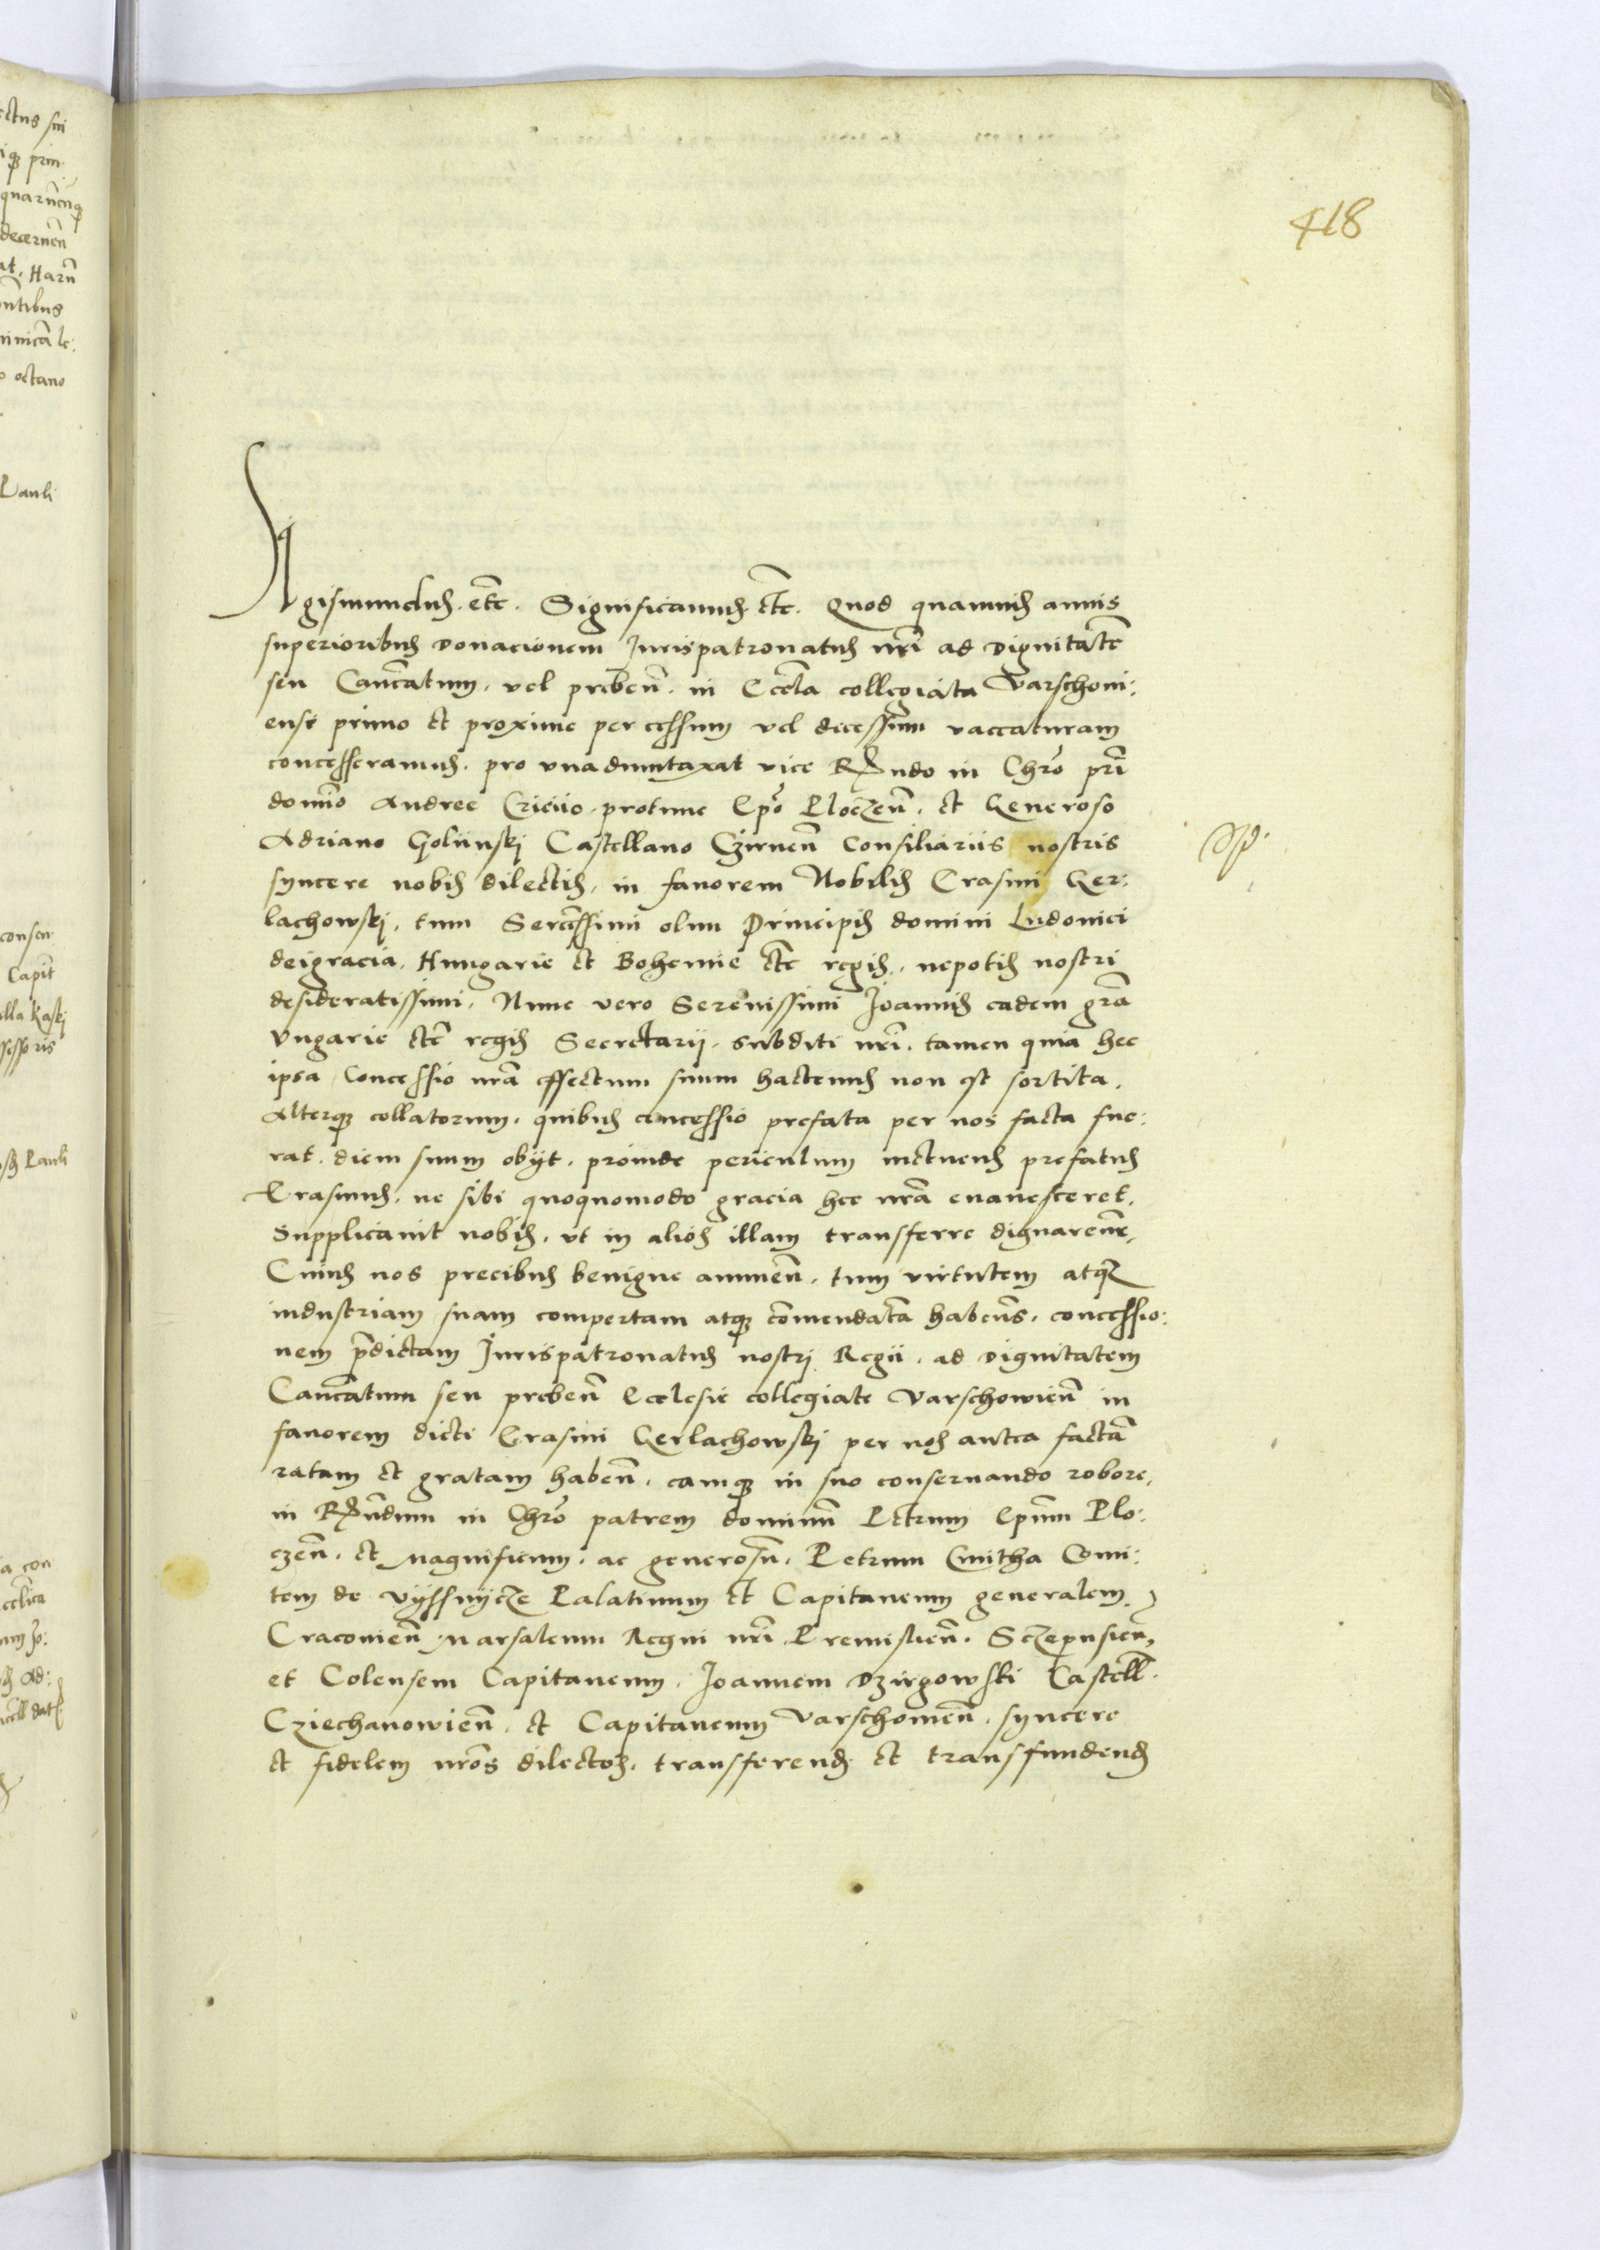 418
Sigismundus. etc̃. Significamus etc̃. Quod quamuis annis
superioribus donacionem Jurispatronatus nr̃i ad dignitatẽ
seu Can̄catum. vel preben̄. in Eccl̃ia collegiata Varschoui:
ensi primo et proxime per cessum vel decessum vaccaturam
concesseramus. pro vna dumtaxat vice Rndo in Chr̃o pr̃i
domĩo Andree Cricio. protunc Ep̃o Ploczen̄. et Generoso
Adriano Goliinskj Castellano Czirnen̄ Consiliariis nostris
syncere nobis dilectis. in fauorem Nobilis Erasmi Ger:
lachowskj. tum Serenissimi olim Principis domini Ludouici
deigracia. Hungarie et Bohemie etc̃ regis. nepotis nostri
desideratissimi. Nunc vero Serenissimi Joannis eadem gr̃a
Vngarie etc̃ regis Secretarij. subditi nr̃i. tamen quia hec
ipsa Concessio nr̃a effectum suum hactenus non est sortita.
Alterq; collatorum. quibus concessio prefata per nos facta fue:
rat. diem suum obijt. proinde periculum metuens prefatus
Erasmus. ne sibi quoquomodo gracia hec nr̃a euanesceret.
Supplicauit nobis. vt in alios illam transferre dignaremr̃.
Cuius nos precibus benigne annuen̄. tum virtutem atq;
industriam suam compertam atq; com̃endatã haben̄s. concessio:
nem p̃dictam Jurispatronatus nostrj Regii. ad dignitatem
Can̄catum seu preben̄ Ecclesie collegiate Varschowien̄ in
fauorem dicti Erasmi Gerlachowskj per nos antea factã
ratam et gratam haben̄. eamq; in suo conseruando robore.
in Rn̄dum in Chr̃o patrem dominũ Petrum Ep̃um Plo:
czen̄. et Magnificum. ac generosũ. Petrum Cmitha Comi:
tem de Vyssnijcze Palatinum et Capitaneum generalem
Cracouien̄. Marsalcum Regni nr̃i Premislien̄. Sczepusien̄.
et Colensem Capitaneum. Joannem Dzirgowski Castell̃.
Cziechanowien̄. et Capitaneum Varschouien̄. syncere
et fidelem nr̃os dilectos. transferend. et transfundend